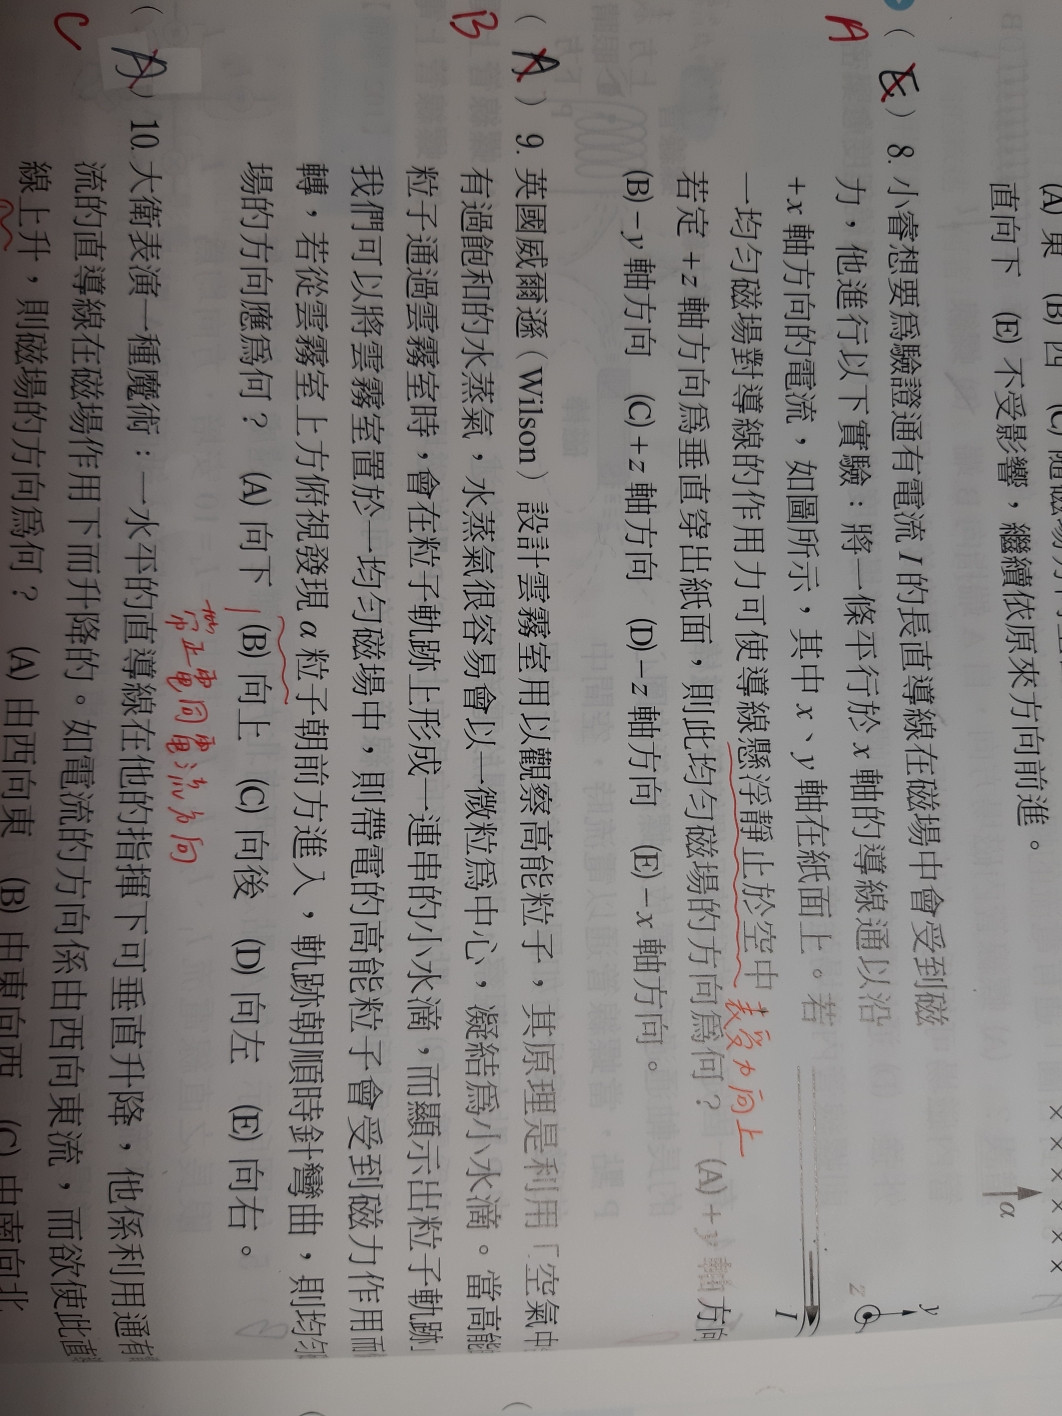 (A) 東 (B) 西
直向下 (E) 不受影響，繼續依原來方向前進。
α
A
(E) 8. 小睿想要為驗證通有電流 I 的長直導線在磁場中會受到磁
力，他進行以下實驗：將一條平行於 x 軸的導線通以沿
+x 軸方向的電流，如圖所示，其中 x、y 軸在紙面上。若
一均勻磁場對導線的作用力可使導線懸浮靜止於空中
表受力向上
若定 +z 軸方向為垂直穿出紙面，則此均勻磁場的方向為何？ (A) +y 軸方向
(B) −y 軸方向 (C) +z 軸方向 (D) −z 軸方向 (E) −x 軸方向。
y
z
I
B
(A) 9. 英國威爾遜（Wilson）設計雲霧室用以觀察高能粒子，其原理是利用「空氣中
有過飽和的水蒸氣，水蒸氣很容易會以一微粒為中心，凝結為小水滴。當高能
粒子通過雲霧室時，會在粒子軌跡上形成一連串的小水滴，而顯示出粒子軌跡
我們可以將雲霧室置於一均勻磁場中，則帶電的高能粒子會受到磁力作用而
轉，若從雲霧室上方俯視發現 α 粒子朝前方進入，軌跡朝順時針彎曲，則均勻
場的方向應為何？ (A) 向下 (B) 向上 (C) 向後 (D) 向左 (E) 向右。
帶正電同電流方向
C
(A) 10. 大衛表演一種魔術：一水平的直導線在他的指揮下可垂直升降，他係利用通有
流的直導線在磁場作用下而升降的。如電流的方向係由西向東流，而欲使此直
線上升，則磁場的方向為何？ (A) 由西向東 (B) 由東向西 (C) 由南向北